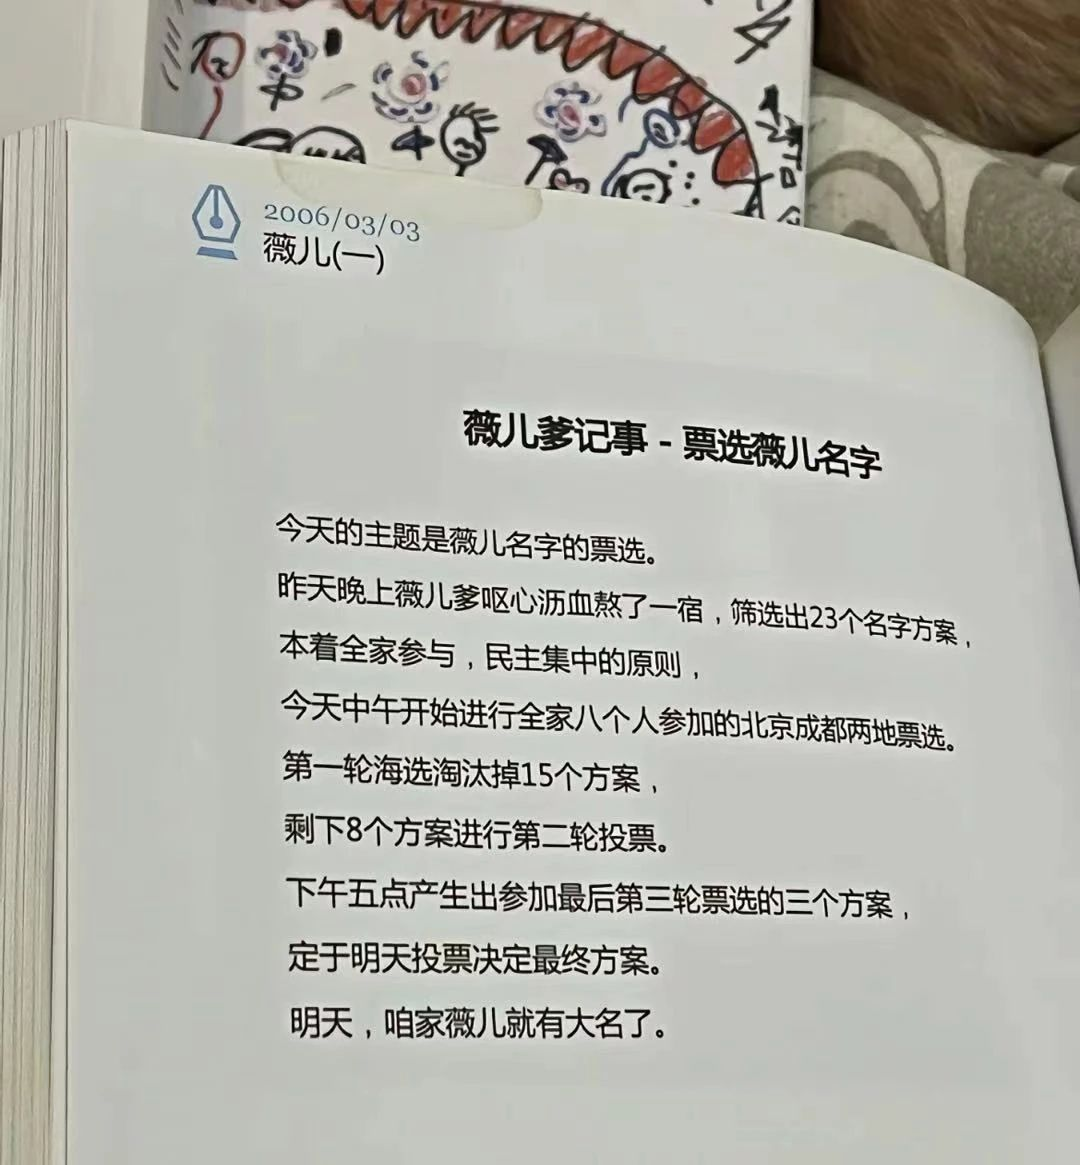 2006/03/03
薇儿(一)
薇儿爹记事 - 票选薇儿名字
今天的主题是薇儿名字的票选。
昨天晚上薇儿爹呕心沥血熬了一宿，筛选出23个名字方案，
本着全家参与，民主集中的原则，
今天中午开始进行全家八个人参加的北京成都两地票选。
第一轮海选淘汰掉15个方案，
剩下8个方案进行第二轮投票。
下午五点产生出参加最后第三轮票选的三个方案，
定于明天投票决定最终方案。
明天，咱家薇儿就有大名了。